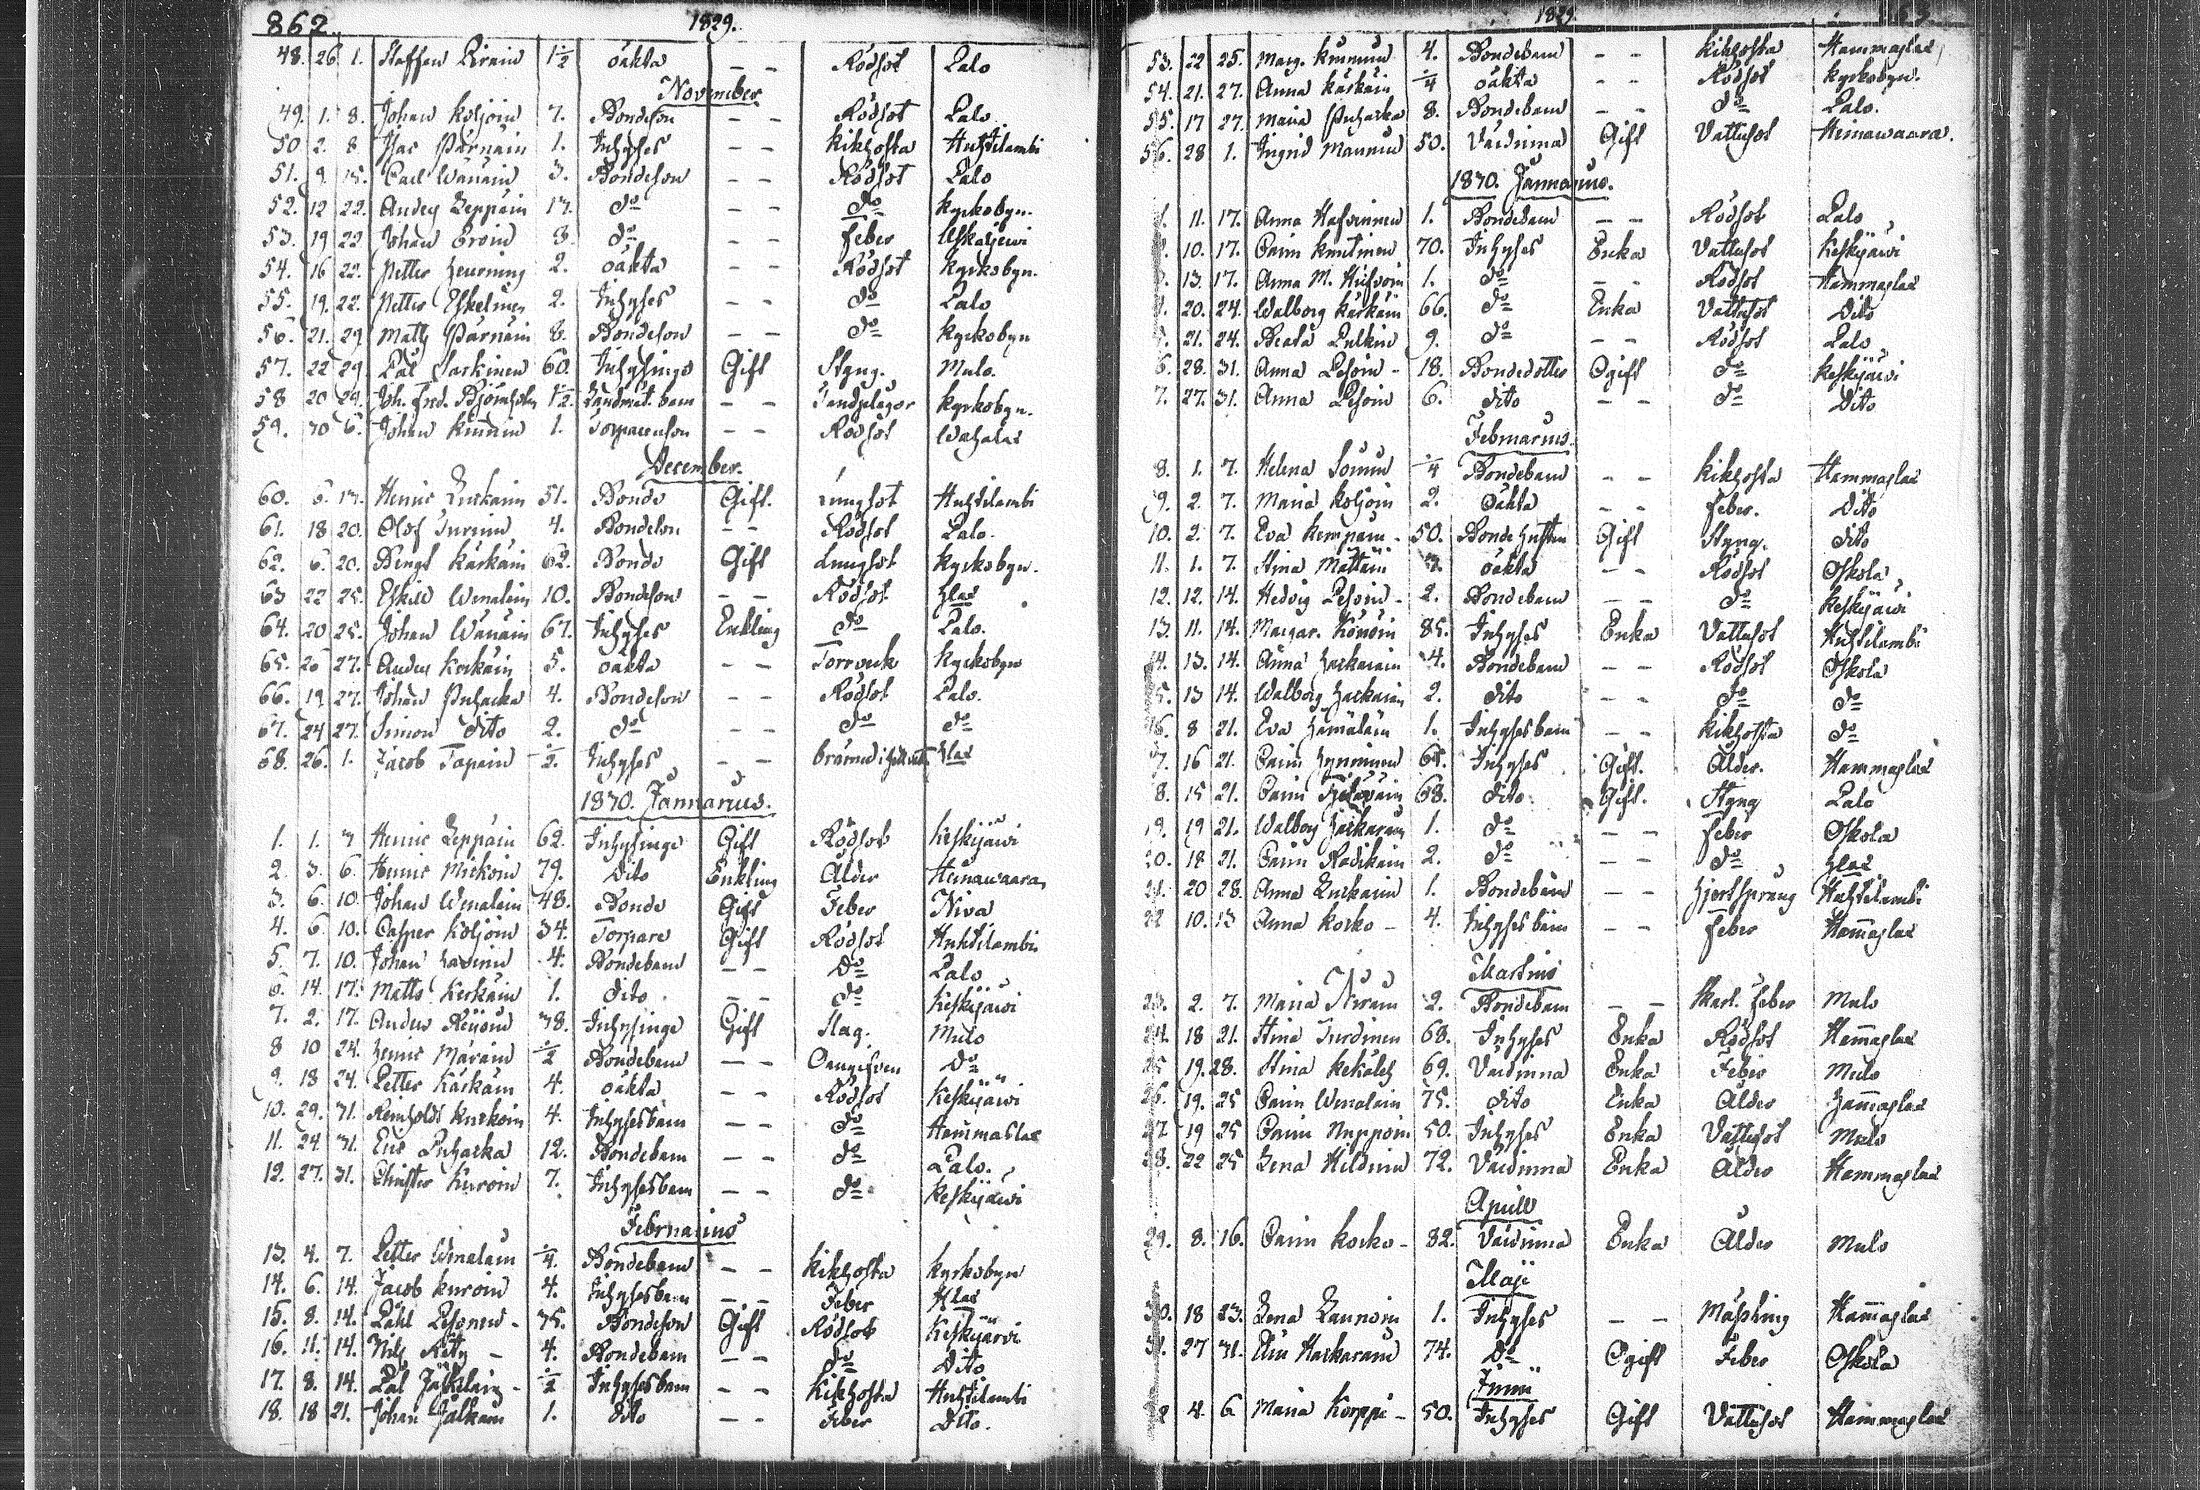 862. 1829.
48. 26 1. Staffan Pirain 1/2 oäkta - - Rödsot Palo
November
49. 1. 8. Johan Koljoin 7. Bondeson - - Rödsot Palo
50 2. 8 Isac Pärnäin 1. Inhyses - - Kikhosta Huhtilambi
51. 9. 15. Carl Wänäin 3. Bondeson - - Rödsot Palo
52. 12 22. Anders Leppäin 17. do - - do Kyrkobyn.
53. 19 22 Johan Eroin 8. do - - feber
54. 16 22. Petter Henning 2. oäkta - - Rödsot Kyrkobyn.
55. 19. 22. Petter Eskelinen 2. Inhyses - - do Palo
56. 21. 29 Matts Pärnäin 8. Bondeson - - do Kyrkobyn
57. 22 29. Pål Sarkinen 60. Inhysings Gift Styng. Mulo.
58 20 29. Joh. Fred. Björnholm 1/2. Landmät. barn - - Kyrkobyn.
59. 30 6. Johan Kinnuin 1. Torpareson - - Rödsot
December.
60. 6. 13. Henric Turkain 51. Bonde Gift. Lungsot Huhtilambi
61. 18 20. Olof Turuin 4. Bondeson - - Rödsot Palo.
62. 6. 20. Bengt Kärkäin 62. Bonde Gift Lungsot Kyrkobyn.
63 22 25. Eskill Wenäläin 10. Bondeson - - Rödsot
64. 20 25. Johan Wänäin 67. Inhyses Enkling do Palo.
65. 26 27. Anders Kärkäin 5. oäkta - - Torrvärk Kyrkobyn
66. 19 27. Johan Puhacka 4. Bondeson - - Rödsot Palo.
67. 24 27. Simon Dito 2. do - - do do
68. 26. 1. Jacob Tapain 1/2. Inhyses - -
1830. Januarius.
1. 1. 3 Henric Leppäin 62. Inhysinge Gift Rödsot Keskijärvi
2. 3. 6. Henric Mickoin 79. Dito Enkling Ålder Heinawaara
3. 6. 10. Johan Wenäläin 48. Bonde Gift Feber Niva
4. 6. 10. Casper Koljoin 34. Torpare Gift Rödsot Huhtilambi
5. 7. 10. Johan 4. Bondebarn - - Do Palo
6. 14. 17. Matts Kärkäin 1. Dito - - do Keskijärvi
7. 2. 17. Anders Reijoin 38. Inhysinge Gift Slag. Mulo
8 10 24. Henric Märäin 1/2 Bondebarn - - Oangifven Do
9. 18 24. Petter Kärkäin 4. oäkta - - Rödsot Keskijärvi
10. 29. 31. Reinholdt Kurkoin 4. Inhysesbarn - - do Hammaslax
11. 24 31. Eric Puhacka 12. Bondebarn - - do Palo.
12. 27. 31. Christer Kuroin 7. Inhysesbarn - - do Keskijärvi
Februarius
13. 4. 7. Petter Wenäläin 1/4. Bondebarn - - Kikhosta Kyrkobyn
14. 6. 14. Jacob Kuroin 4. Inhysesbarn - - Feber
15. 8. 14. Påhl Pesonen - 35. Bondeson Gift Rödsot Keskijärvi
16. 11. 14. Nils Räty - 4. Bondebarn - - do Dito
17. 8. 14. Pål Jäskeläin - 1/2 Inhysesbarn - - Kikhosta Huhtilambi
18. 18 21. Johan Jalkain 1. Dito - - Feber Dito.
1829.
53. 22 25. Marg. Kinnuin 4. Bondebarn - - Kikhosta Hammaslax
54. 21. 27. Anna Kärkäin 1/4 oäkta - - Rödsot Kyrkobyn.
55. 17 27. Maria Puhacka 8. Bondebarn - - do Palo.
56. 28 1. Ingrid Maunuin 50. Värdinna Gift Vattusot Heinawaara.
1830. Januarius.
1. 11. 17. Anna Hafvuinen 1. Bondebarn - - Rödsot Palo
10. 17. Carin Knutinen 70. Inhyses Enka Vattusot Keskijärvi
13. 17. Anna M. 1. do - - Rödsot Hammaslax
20. 24. Walborg Kärkäin 66. do Enka Vattusot Dito
21. 24. Beata Pulkin 9. do - - Rödsot Palo
6. 28. 31. Anna Pesoin - 18. Bondedotter Ogift do Keskijärvi
7. 27. 31. Anna Pesoin 6. Dito - - do Dito
Februarius.
8. 1. 7. Helena Soinin 1/4 Bondebarn - - Kikhosta Hammaslax
9. 2. 7. Maria Koljoin 2. Oäkta - - Feber. Dito
10. 2. 7. Eva Kempain - 50. Bondehustru Gift Styng. Dito
11. 1. 7. Stina Mattäin 3. oäkta - - Rödsot Oskola
12. 12. 14. Hedvig Pesoin - 2. Bondebarn - - do Keskijärvi
13. 11. 14. Margar. Könöin 85. Inhyses Enka Vattusot Huhtilambi
14. 13. 14. Anna Hackarain 4. Bondebarn - - Rödsot Oskola
15. 13 14. Walborg Hackarain 2. Dito - - do do
16. 8 21. Eva Hämäläin 1. Inhysesbarn - - Kikhosta do
17. 16 21. Carin Hynninen 65. Inhyses Gift. Ålder. Hammaslax
18. 15 21. Carin 68. Dito Gift. Styng Palo
19. 19 21. Walborg Hackarain 1. do - - Feber Oskola
20. 18 21. Carin 2. do - - do
21. 20 28. Anna Turkain 1. Bondebarn - - Hjertsprång Huhtilambi
22 10. 13 Anna Korko - 4. Inhysesbarn - - Feber Hammaslax
Martius
23. 2. 7. Maria Nirain 2. Bondebarn - - Skarl. Feber Mulo
24. 18 21. Stina Turdinen 68. Inhyses Enka Rödsot Hammaslax
25 19. 28. Stina Kekäläin 69. Värdinna Enka Feber Mulo
26. 19. 25 Carin Wenäläin 75. Dito Enka Ålder Hammaslax
27. 19 25 Carin Nuppoin 50. Inhyses Enka Vattusot Mulo
28. 22 25 Lena Hildoin 72. Värdinna Enka Ålder Hammaslax
Aprill
29. 8. 16. Carin Korko - 82. Värdinna Enka Ålder Mulo
Maji
30. 18 23. Lena Launoin 1. Inhyses - - Mässling Hammaslax
31. 27 31. Elin Hackarain 74. Do Ogift Feber Oskola
Junii
4. 6 Maria Korppi - 50. Inhyses Gift Vattusot Hammaslax